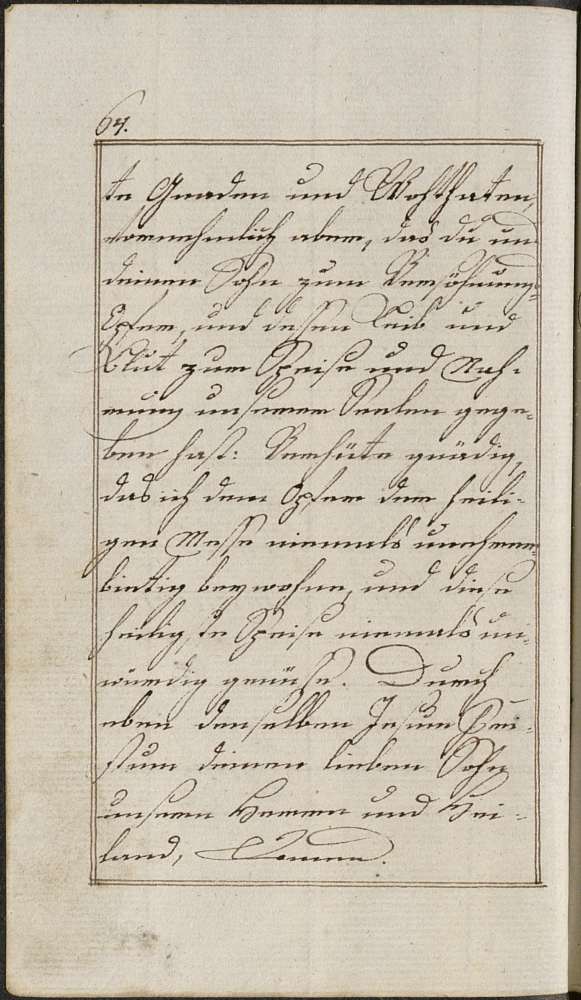 64.
te Gnaden und Wohlthaten,
vornehmlich aber, das du uns
deinen Sohn zum Versöhnung-
Opfer, und dessen Leib und
Blut zur Speise und Nah-
rung unserer Seelen gege-
ben hast: Verhüte gnädig,
das ich dem Opfer der heili-
gen Messe niemals unehrer-
bietig beywohne, und diese
heiligste Speise niemals un-
würdig genüße. Durch
eben denselben Jesum Chri-
stum deinen lieben Sohn
unsern Herren und Hei-
land, Amen.